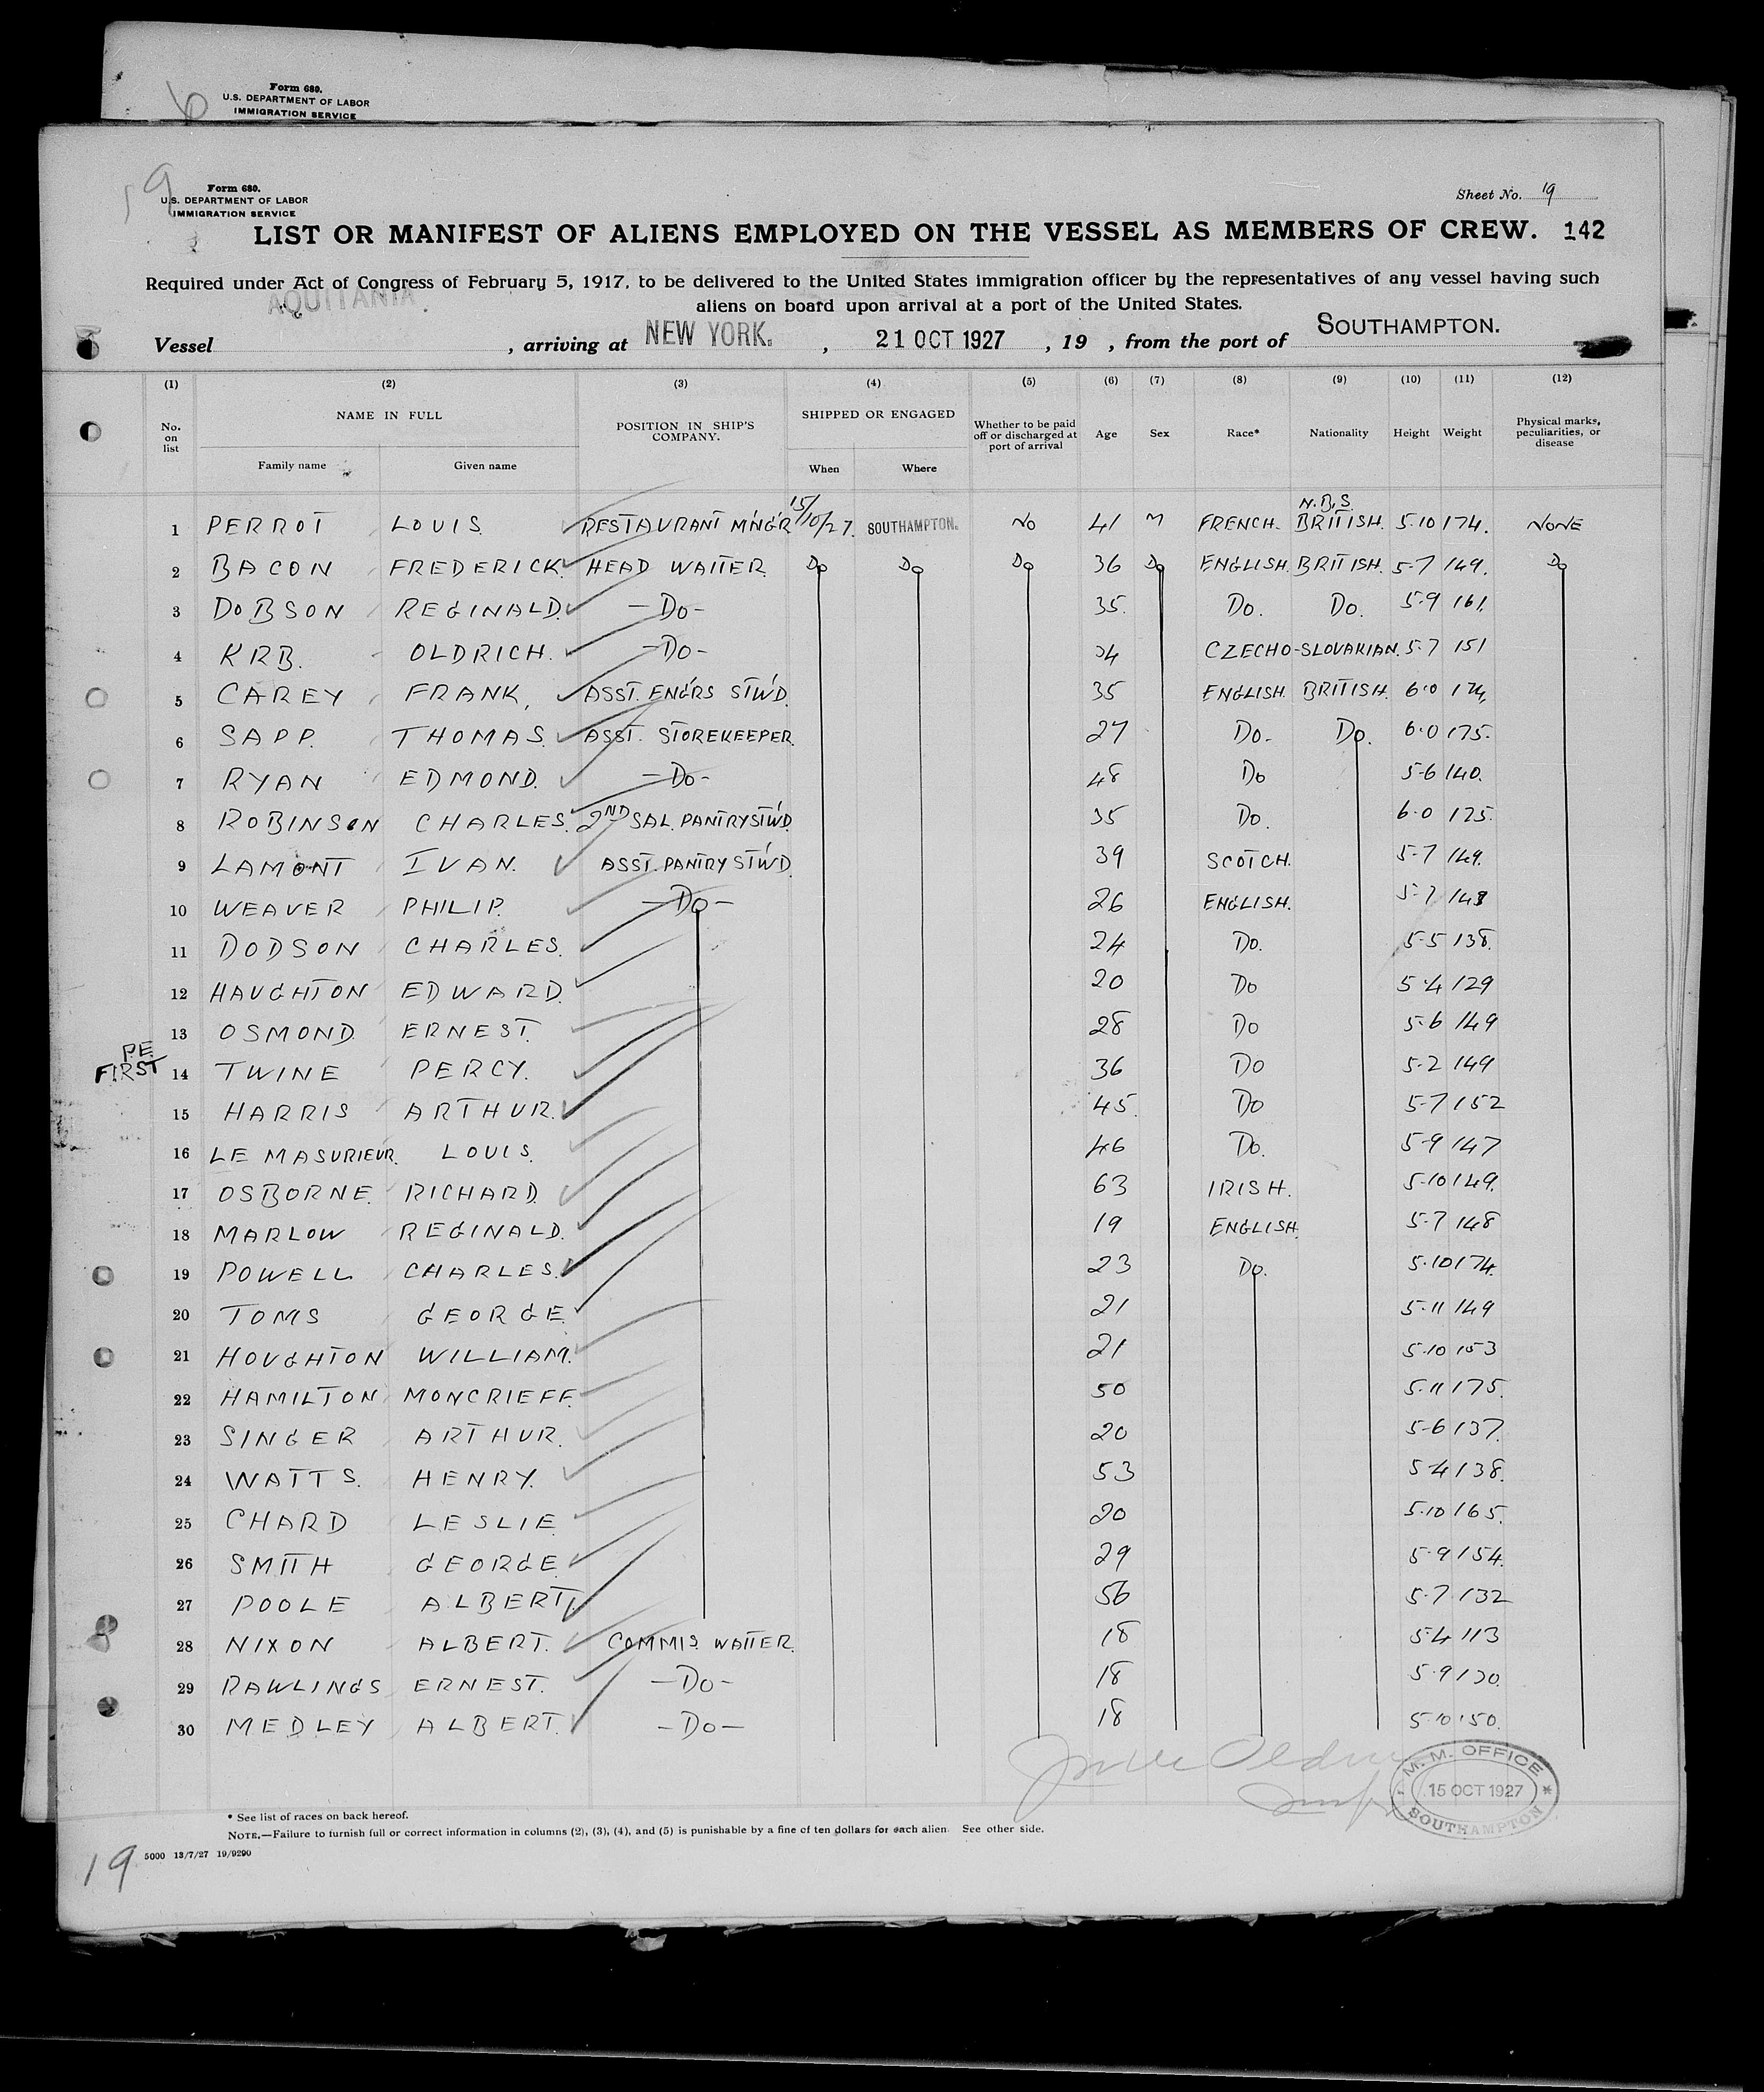 Form 680.
U.S. DEPARTMENT OF LABOR
IMMIGRATION SERVICE
19
Form 680.
U.S. DEPARTMENT OF LABOR
IMMIGRATION SERVICE
Sheet No. 19
LIST OR MANIFEST OF ALIENS EMPLOYED ON THE VESSEL AS MEMBERS OF CREW. 142
Required under Act of Congress of February 5, 1917, to be delivered to the United States immigration officer by the representatives of any vessel having such
aliens on board upon arrival at a port of the United States.
Vessel AQUITANIA, arriving at NEW YORK., 21 OCT 1927, 19 , from the port of SOUTHAMPTON.
(1) (2) (3) (4) (5) (6) (7) (8) (9) (10) (11) (12)
No. on list NAME IN FULL POSITION IN SHIP'S COMPANY. SHIPPED OR ENGAGED Whether to be paid off or discharged at port of arrival Age Sex Race* Nationality Height Weight Physical marks, peculiarities, or disease
Family name Given name When Where
N.B.S.
1 PERROT LOUIS. RESTAURANT M'NG'R 15/10/27. SOUTHAMPTON. NO 41 M FRENCH. BRITISH. 5.10 174. NONE
2 BACON FREDERICK. HEAD WAITER. Do Do Do 36 Do ENGLISH. BRITISH. 5-7 149. Do
3 DOBSON REGINALD. -Do- 35. Do. Do. 5.9 161.
4 KRB. OLDRICH. -Do- 34 CZECHO-SLOVAKIAN. 5.7 151
5 CAREY FRANK, ASST. ENG'RS STW'D. 35 ENGLISH. BRITISH. 6.0 174,
6 SAPP. THOMAS. ASST. STOREKEEPER. 27 Do. Do. 6.0 175.
7 RYAN EDMOND. -Do- 48 Do 5-6 140.
8 ROBINSON CHARLES. 2ND SAL. PANTRY STW'D. 35 Do. 6.0 175.
9 LAMONT IVAN. ASST. PANTRY STW'D. 39 SCOTCH. 5-7 149.
10 WEAVER PHILIP. -Do- 26 ENGLISH. 5-7 143
11 DODSON CHARLES. 24 Do. 5-5 138.
12 HAUGHTON EDWARD. 20 Do 5.4 129
13 OSMOND. ERNEST. 28 Do 5-6 149
P.E. FIRST
14 TWINE PERCY. 36 Do 5-2 149
15 HARRIS ARTHUR. 45. Do 5-7 152
16 LE MASURIEUR. LOUIS. 46 Do. 5-9 147
17 OSBORNE. RICHARD. 63 IRISH. 5-10 149.
18 MARLOW REGINALD. 19 ENGLISH. 5-7 148
19 POWELL CHARLES. 23 Do. 5.10 174.
20 TOMS GEORGE. 21 5-11 149
21 HOUGHTON WILLIAM. 21 5.10 153
22 HAMILTON MONCRIEFF. 50 5.11 175.
23 SINGER ARTHUR. 20 5-6 137.
24 WATTS. HENRY. 53 5-4 138.
25 CHARD LESLIE. 20 5.10 165.
26 SMITH GEORGE. 29 5-9 154.
27 POOLE ALBERT. 56 5-7 132
28 NIXON ALBERT. COMMIS WAITER. 18 5.4 113
29 RAWLINGS ERNEST. -Do- 18 5.9 130.
30 MEDLEY ALBERT. -Do- 18 5.10 150.
M.M. OFFICE
15 OCT 1927
SOUTHAMPTON
* See list of races on back hereof.
NOTE.—Failure to furnish full or correct information in columns (2), (3), (4), and (5) is punishable by a fine of ten dollars for each alien. See other side.
5000 13/7/27 19/9290
19